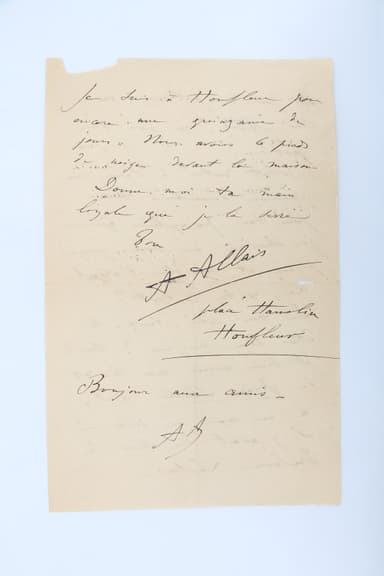 Je suis à Honfleur pour
encore une quinzaine de
jours. Nous avons 6 pieds
de neige devant la maison
Donne moi ta main
loyale que je la serre
Ton
A Allais
place Hamelin
Honfleur
Bonjour aux amis _
AA